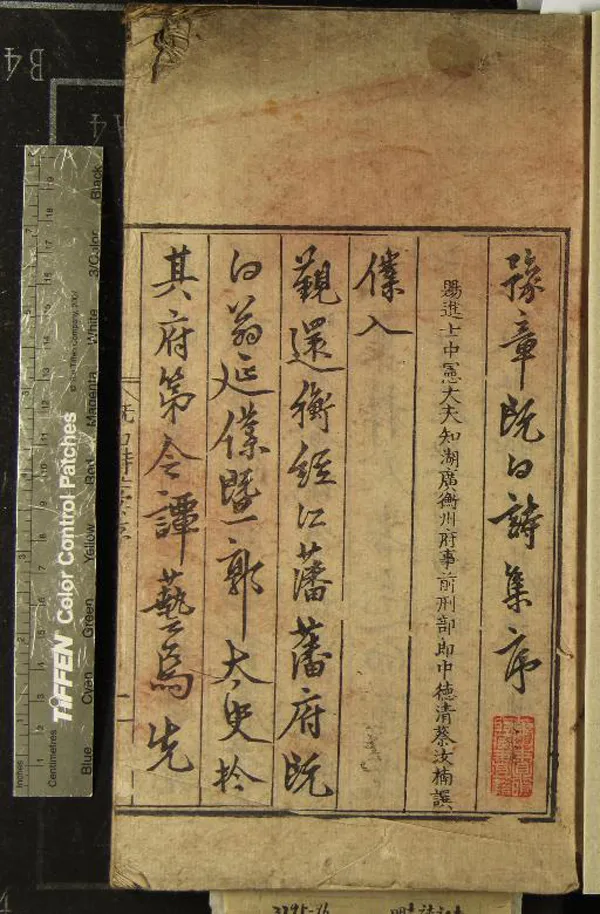 豫章既白詩集序
賜進士中憲大夫知湖廣衡州府事前刑部郎中德清蔡汝楠譔
僕入
觀還衡經江藩藩府既
白翁延僕暨一郭太史於
其府第令譚藝焉先
B4
A4
Inches
Centimetres
TIFFEN Color Control Patches
© The Tiffen Company, 2007
Blue
Cyan
Green
Yellow
Red
Magenta
White
3/Color
Black